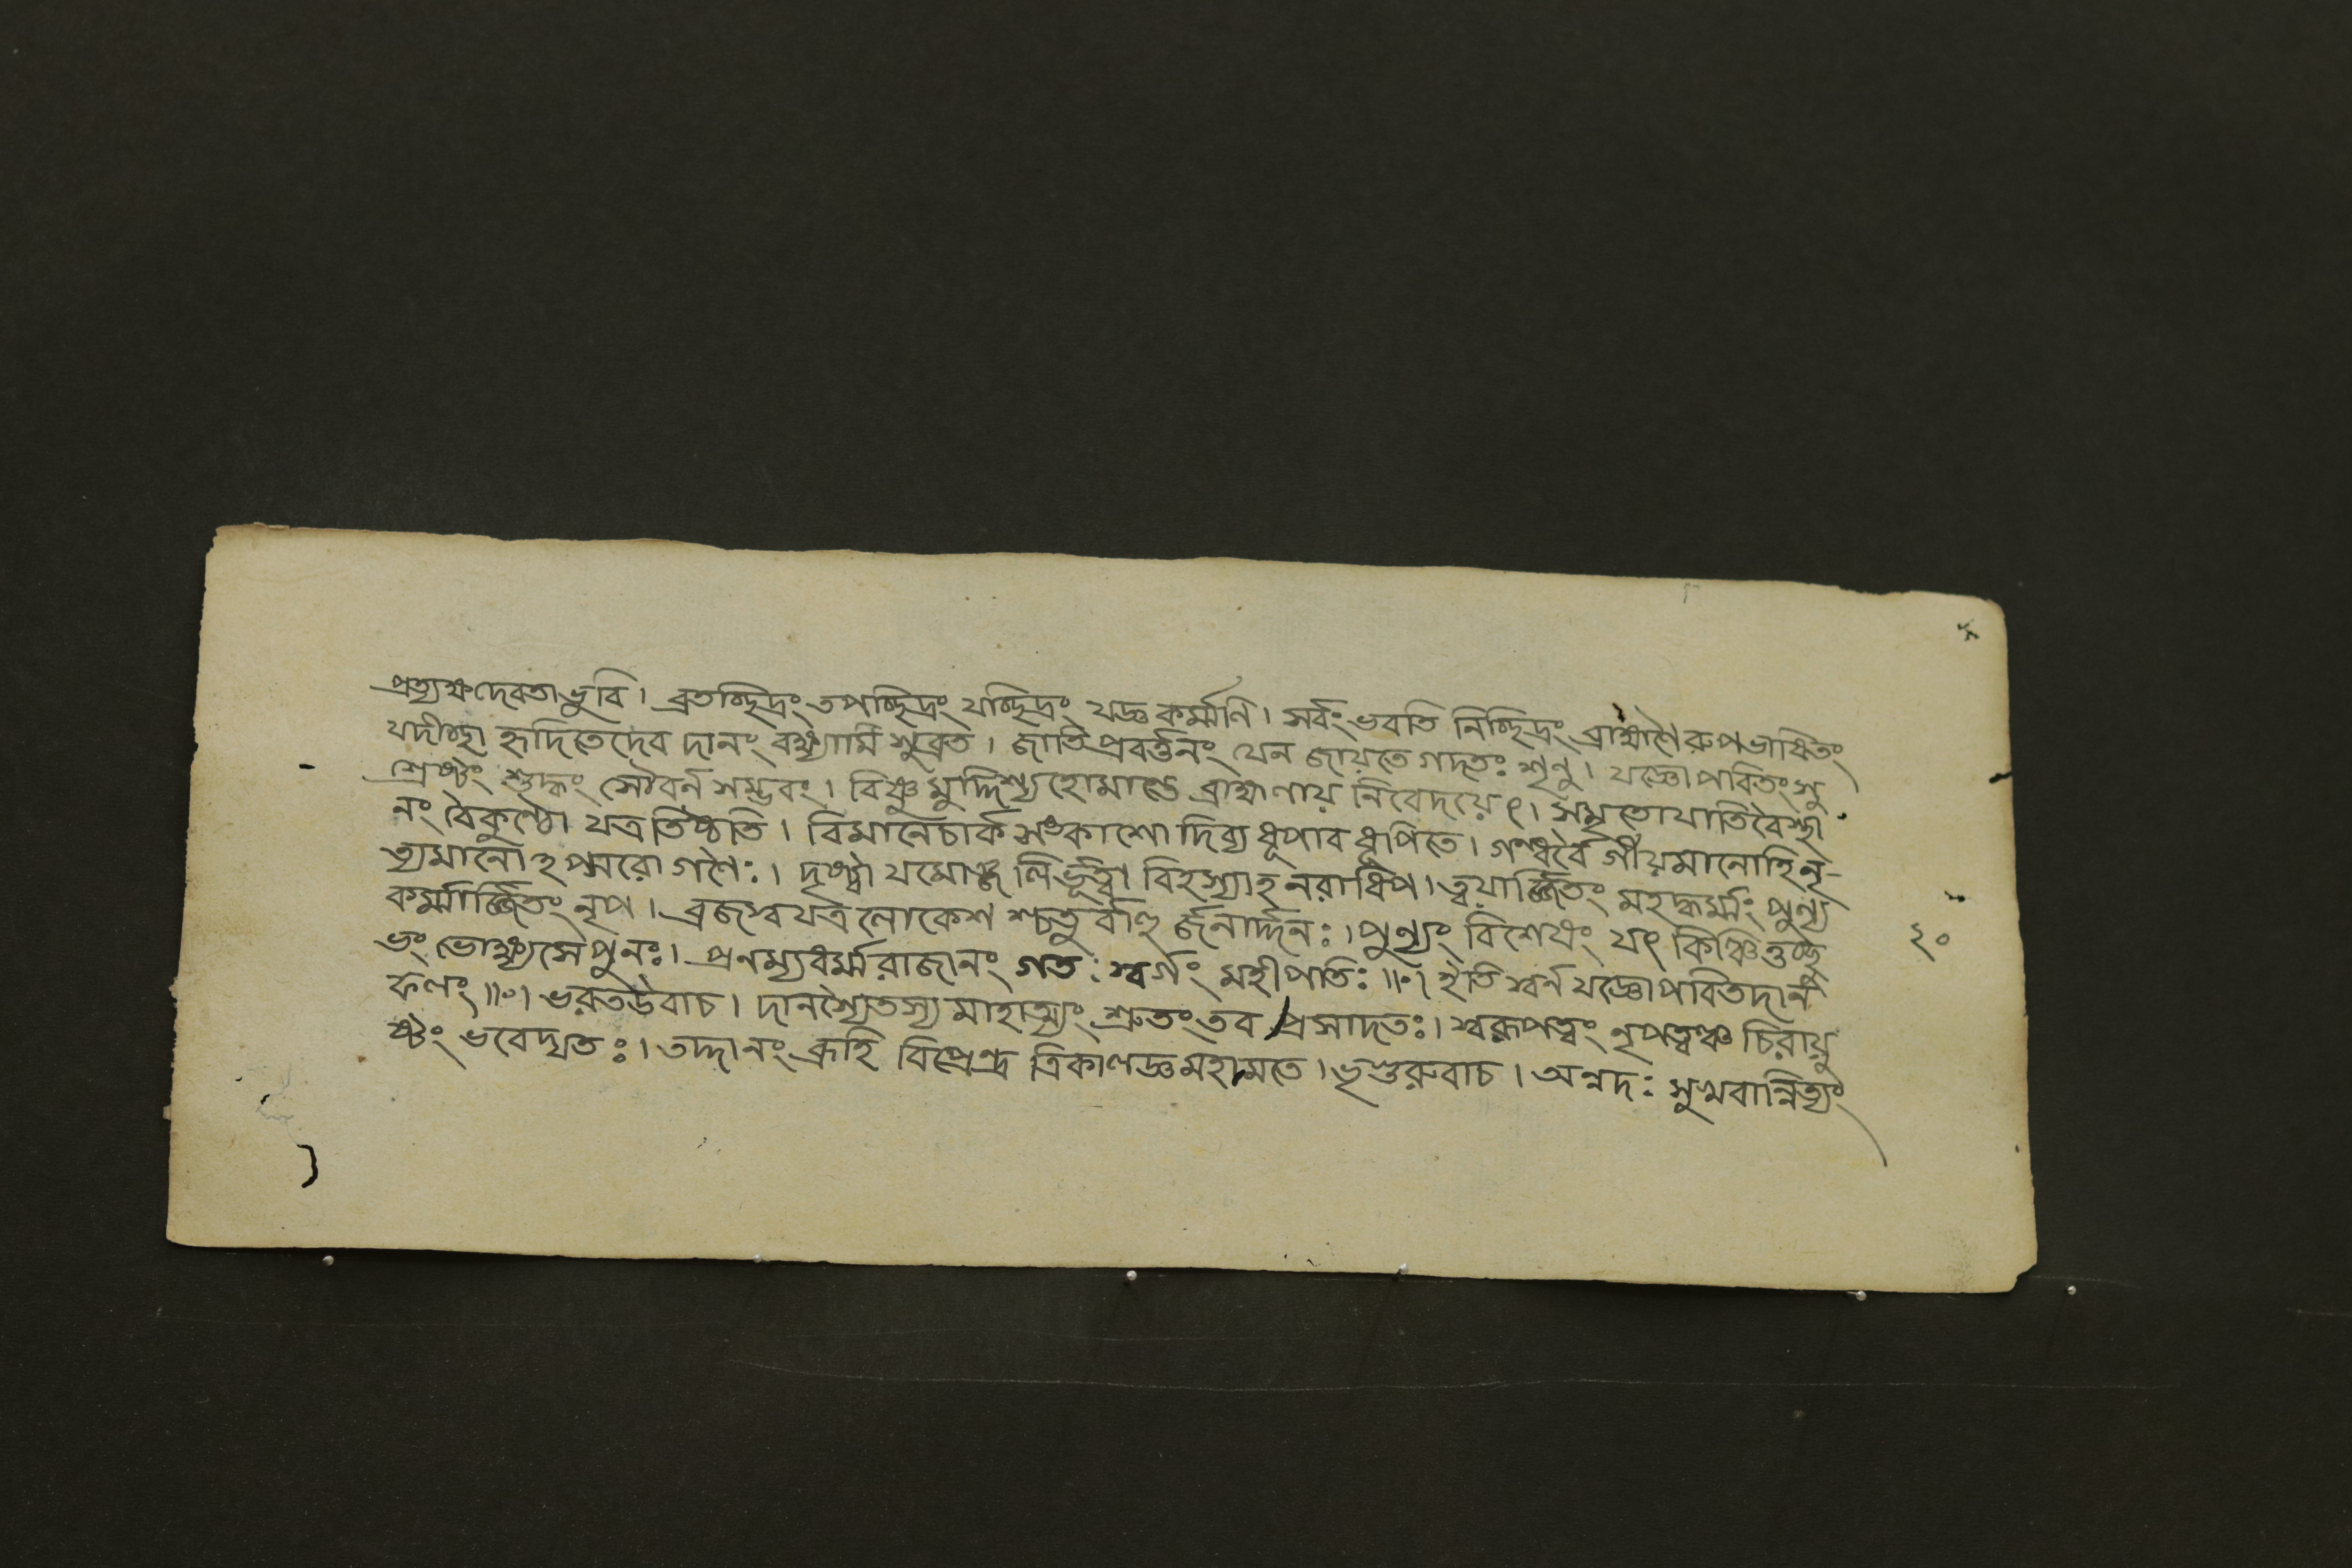 প্রত্যক্ষদেবতাভুবি। ব্রতচ্ছিদ্রং তপচ্ছিদ্রং যচ্ছিদ্রং যজ্ঞকর্ম্মণি। সর্বংভবতি নিচ্ছিদ্রং ব্রাহ্মণৈরুপভাষিতং
যদীচ্ছা হৃদিতেদেব দানং বক্ষ্যামি শুব্রত। জাতিপ্রবর্ত্তনং যেন জায়তে গদতঃ শৃনু। যজ্ঞোপবিতংসু
শ্রেষ্ঠং শুদ্ধং সৌবর্ন সম্ভবং। বিষ্ণুমুদ্দিশ্যহোমান্তে ব্রাহ্মণায় নিবেদয়েৎ। সমৃতোযাতিবৈস্থা
নং বৈকুণ্ঠো যত্রতিষ্ঠতি। বিমানেচার্কসংকাশো দিব্যধূপাবধূপিতে। গন্ধর্বৈর্গীয়মানোহিনৃ-
ত্যমানোহপ্সরোগণৈঃ। দৃষ্ট্বা যমোঞ্জলির্ভূত্বা বিহস্যাহনরাধিপ। ত্বয়ার্জ্জিতং মহদ্ধর্ম্মং পুন্য
কর্ম্মার্জ্জিতং নৃপ। ব্রজস্ব যত্রলোকেশশ্চতুর্বাহু র্জনার্দ্দনঃ। পুন্যং বিশেষং যৎ কিঞ্চিত্তচ্ছু
২০
ভং ভোক্ষ্যসেপুনঃ। প্রনম্যধর্ম্মরাজানং গতঃ স্বর্গং মহীপতিঃ॥০। ইতি স্বর্নযজ্ঞোপবিতদান
ফলং॥০। ভরতউবাচ। দানস্যৈতস্যমাহাত্ম্যং শ্রুতংতব প্রসাদতঃ। স্বরূপত্বং নৃপত্বঞ্চ চিরায়ু
ষ্ট্বং ভবেদ্যতঃ। তদ্দানং ব্রূহি বিপ্রেন্দ্র ত্রিকালজ্ঞমহামতে। ভৃগুরুবাচ। অন্নদঃ সুখবান্নিত্যং